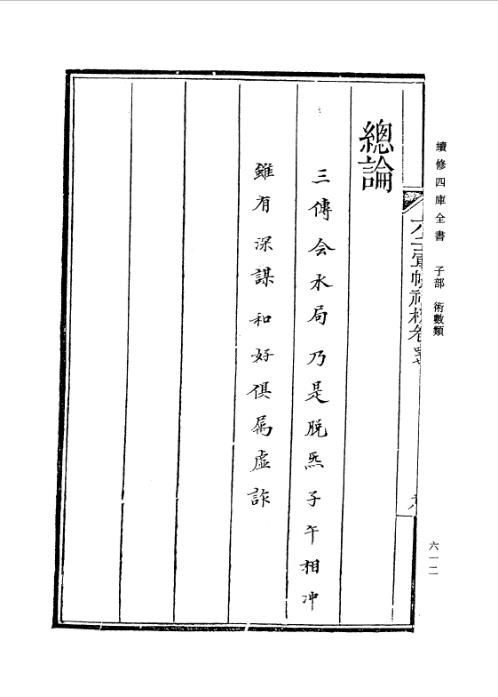 續修四庫全書 子部 術數類
六一二
總論
三傳会水局乃是脱炁子午相冲
雖有深謀和好俱屬虛詐